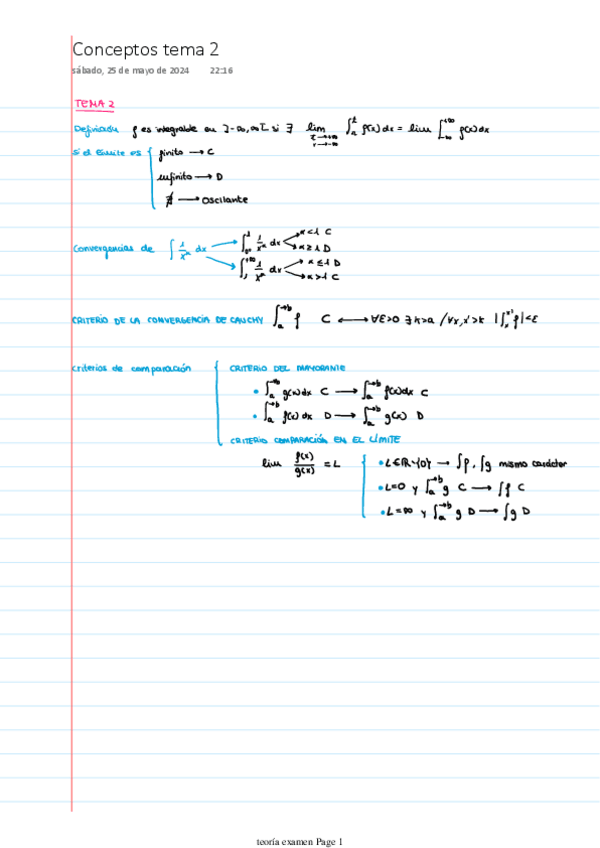 Conceptos tema 2
sábado, 25 de mayo de 2024 22:16
TEMA 2
Definición f es integrable en ]-∞,∞[ si ∃ lim ∫ₐᵗ f(x)dx = lim ∫₋∞⁺∞ f(x)dx
si el límite es { finito → C
infinito → D
∄ → oscilante
Convergencias de ∫ 1/xᵅ dx → ∫₀¹ 1/xᵅ dx < α<1 C
α≥1 D
→ ∫₁⁺∞ 1/xᵅ dx < α≤1 D
α>1 C
CRITERIO DE LA CONVERGENCIA DE CAUCHY ∫ₐ^→b f C ⟷ ∀ε>0 ∃k>a /∀x,x'>k |∫ₓ^x' f|<ε
criterios de comparación { CRITERIO DEL MAYORANTE
• ∫ₐ^→b g(x)dx C → ∫ₐ^→b f(x)dx C
• ∫ₐ^→b f(x)dx D → ∫ₐ^→b g(x) D
CRITERIO COMPARACIÓN EN EL LÍMITE
lim f(x)/g(x) = L { • L∈ℝ-{0} → ∫f, ∫g mismo carácter
• L=0 y ∫ₐ^→b g C → ∫f C
• L=∞ y ∫ₐ^→b g D → ∫g D
teoría examen Page 1